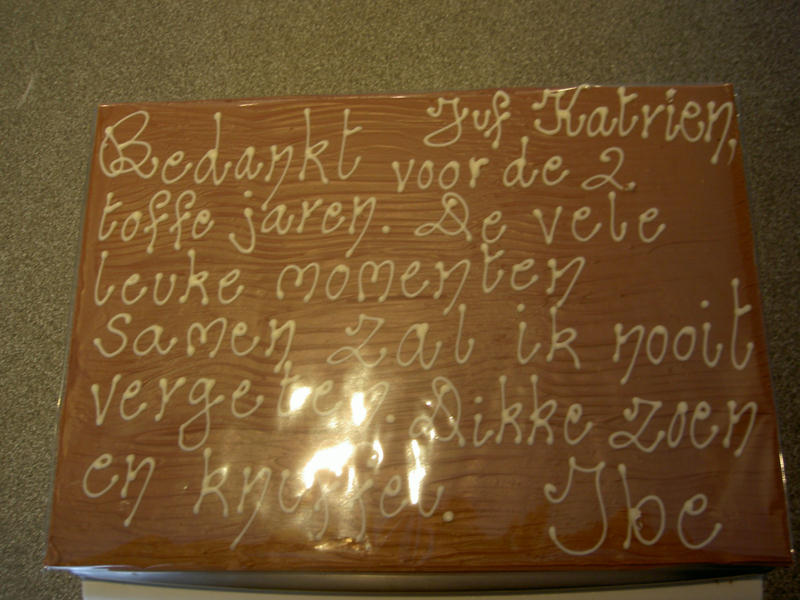 Juf Katrien,
Bedankt voor de 2
toffe jaren. De vele
leuke momenten
samen zal ik nooit
vergeten. Dikke zoen
en knuffel. Ibe